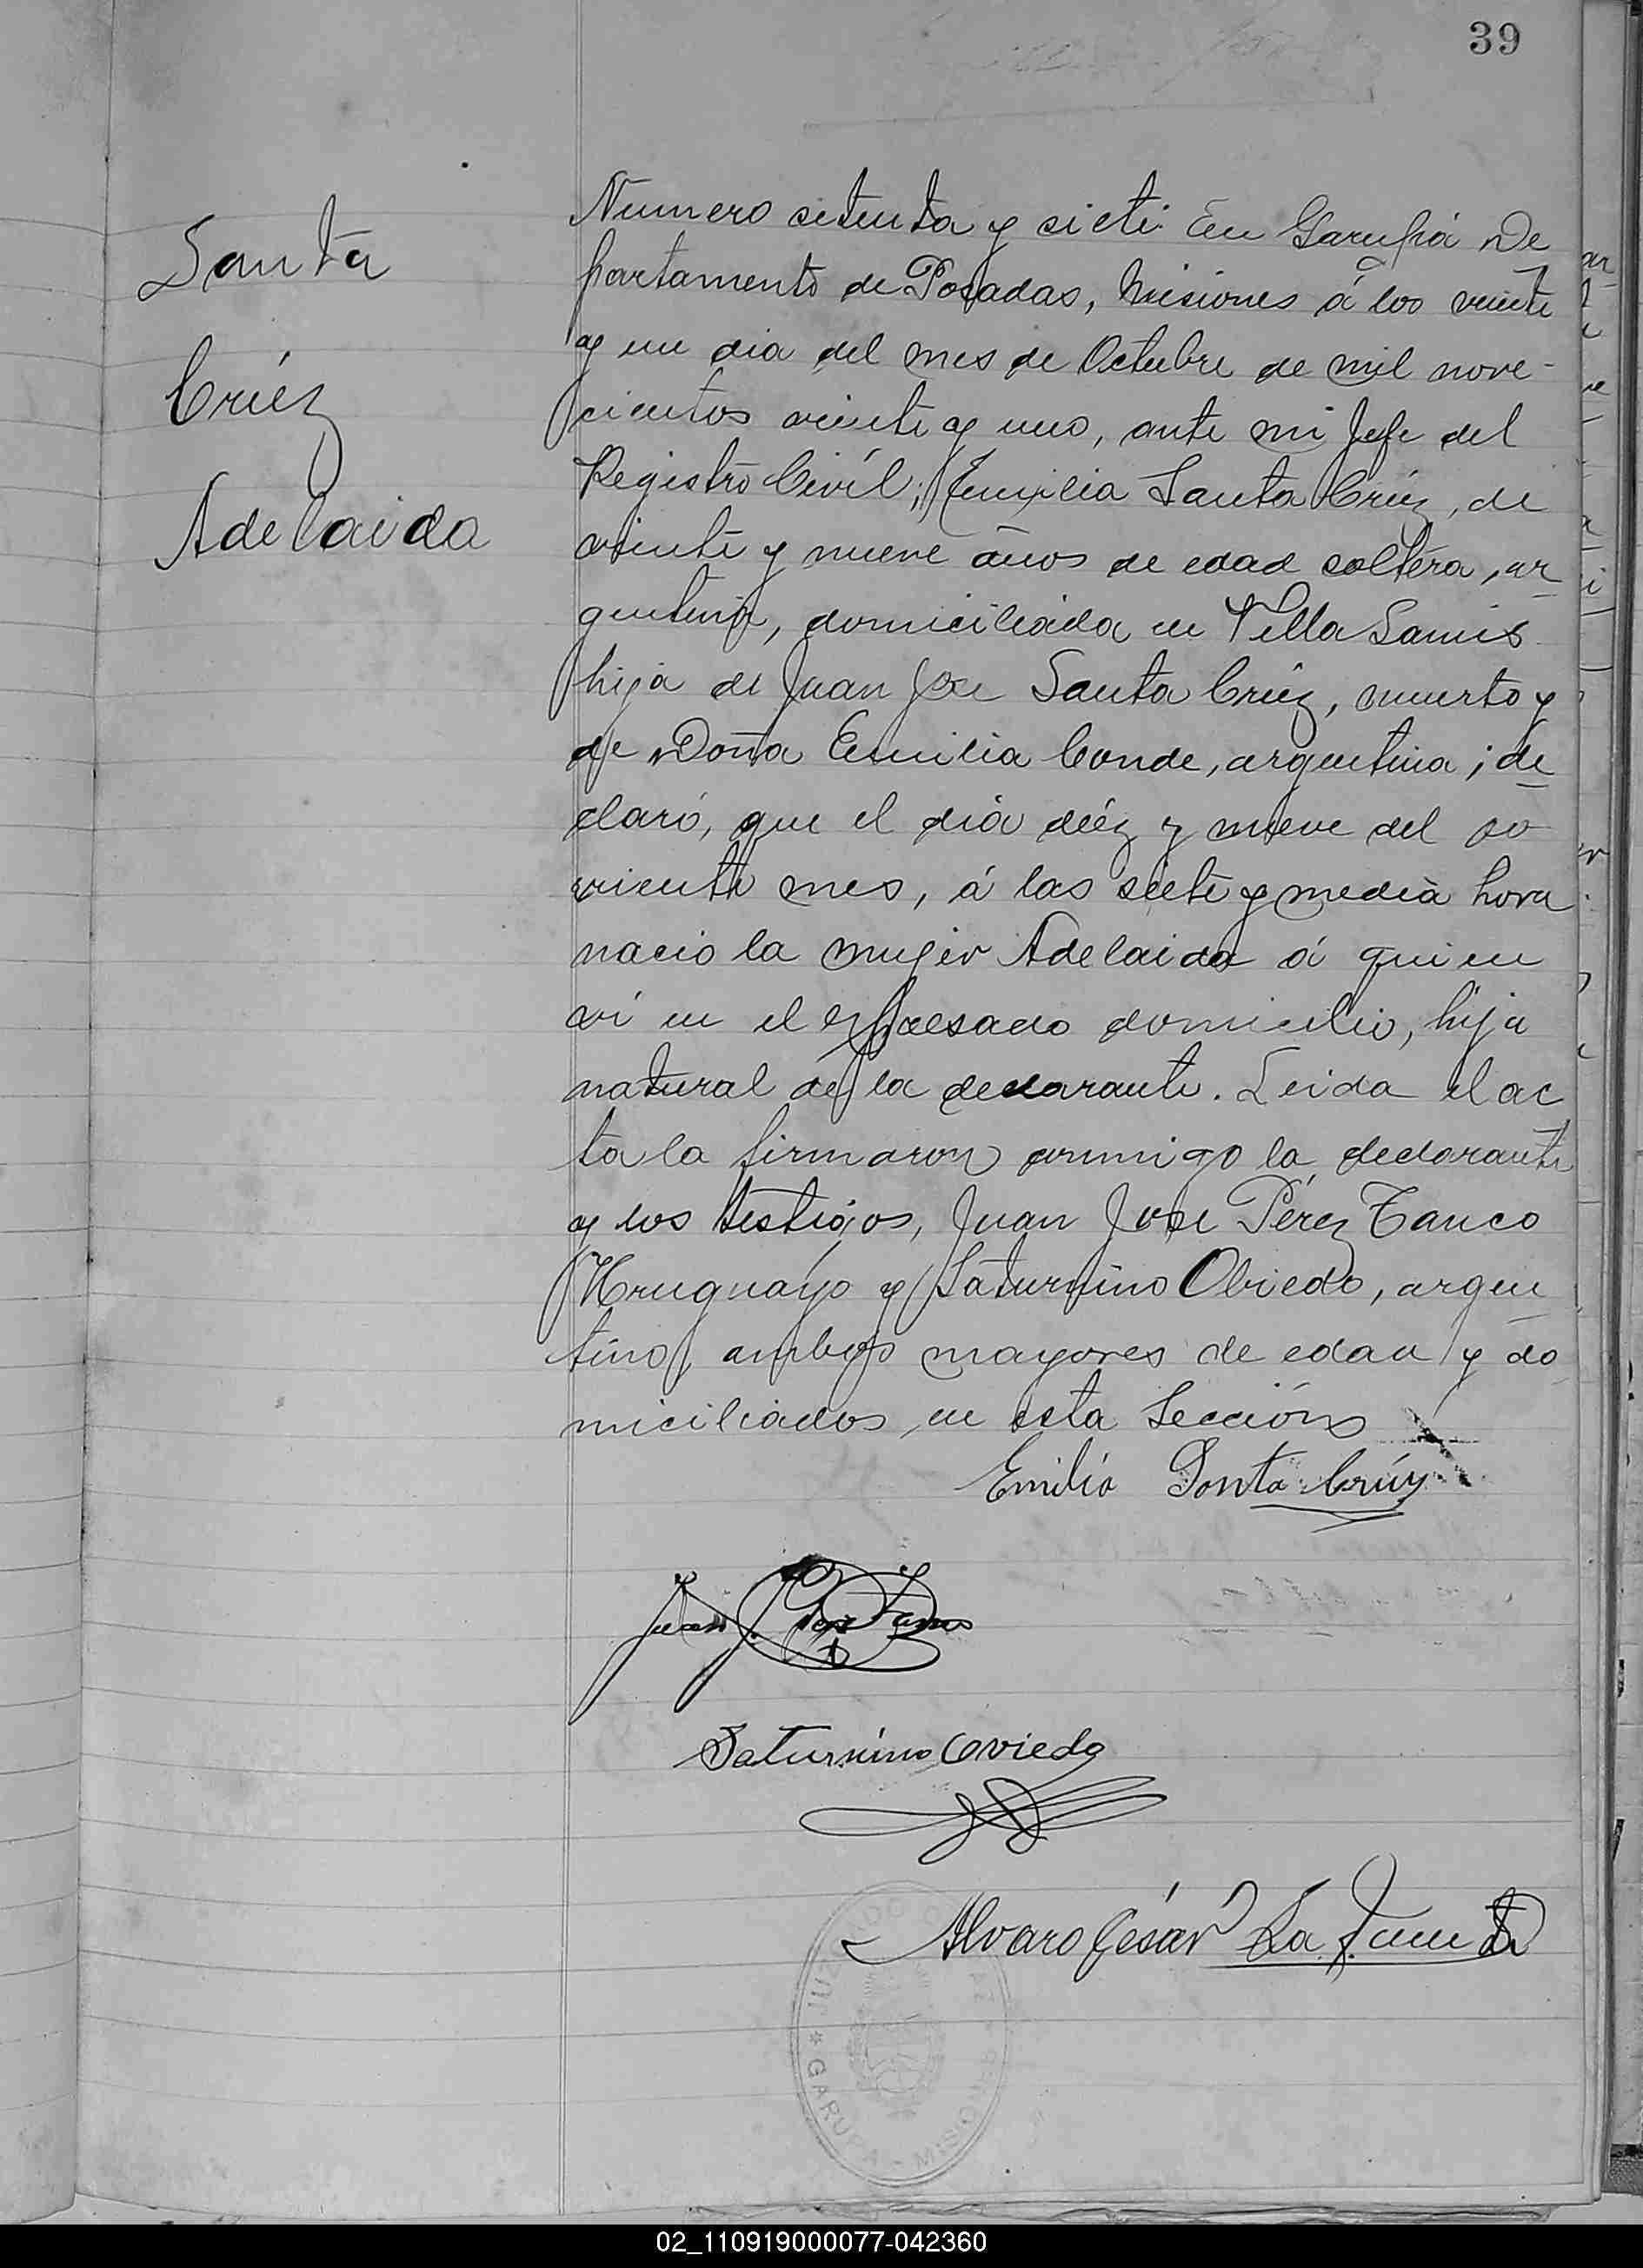 39
Santa
Crúz
Adelaida
Numero setenta y siete. En Garupá De
partamento de Posadas, Misiones á los veinte
y un dia del mes de Octubre de mil nove-
cientos veinte y uno, ante mi Jefe del
Registro Civíl; Emilia Santa Crúz, de
veinte y nueve años de edad soltera, ar
gentina, domiciliada en Villa Lanús
hija de Juan Jose Santa Crúz, muerto y
de Doña Emilia Conde, argentina; de
claró, que el dia diéz y nueve del co
rriente mes, á las siete y media hora
nacio la mujer Adelaida á quien
ví en el expresado domicilio, hija
natural de la declarante. Leida el ac
ta la firmaron conmigo la declarante
y los testigos, Juan Jose Pérez Tanco
Uruguayo y Saturnino Obiedo, argen
tino, ambos mayores de edad y do
miciliados en esta Sección
Emilia Santa Crúz
Juan J. Perez Tanco
Saturnino Oviedo
Alvaro César La
GARUPA - MISIO
02_110919000077-042360